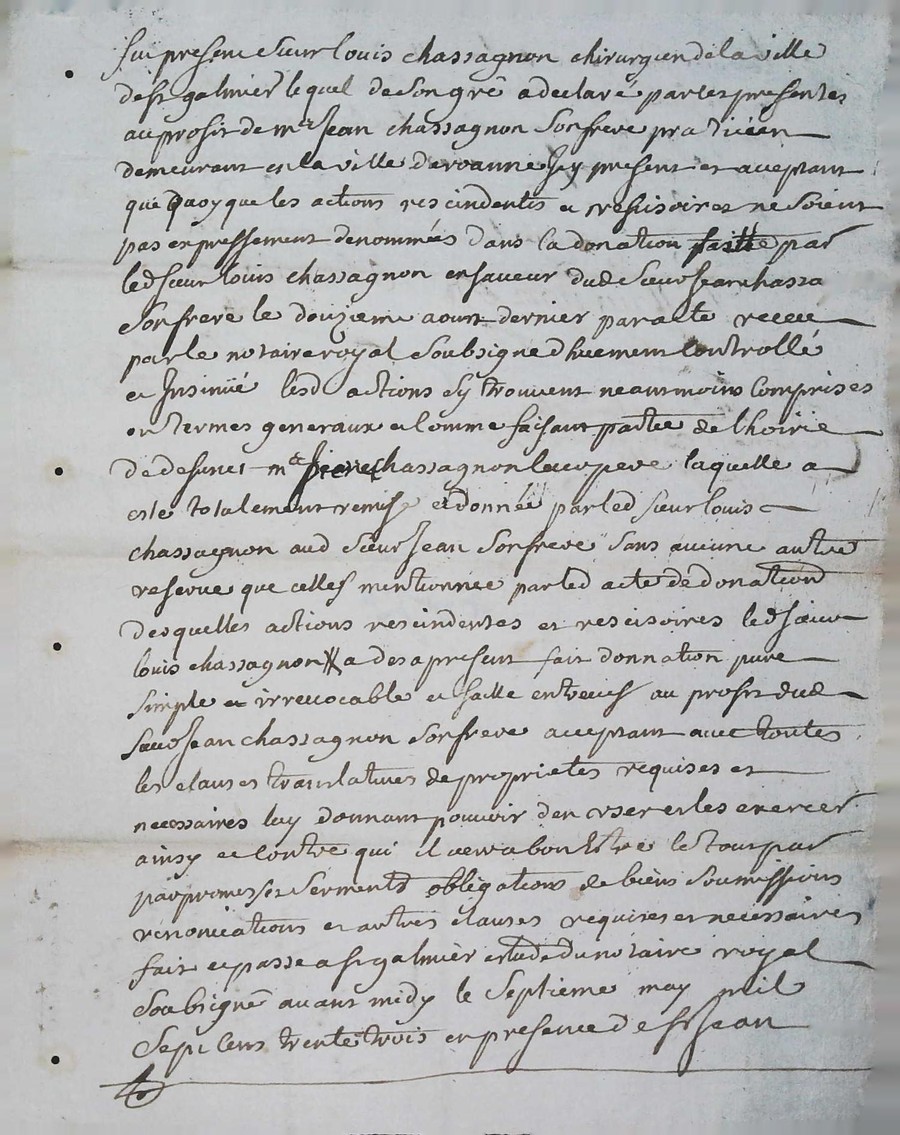 fut present sieur louis chassagnon chirurgien de la ville
de st galmier lequel de son gré a declaré par les presentes
au profit de me Jean chassagnon son frere praticien
demeurant en la ville de roanne Icy present et acceptant
que quoy que les actions rescindentes et rescisoires ne soient
pas expressement denommées dans la donation faitte par
led sieur louis chassagnon en faveur dud sieur Jean chassa
son frere le douzieme aoust dernier par acte receu
par le notaire royal soubsigné dhuement controllé
et Insinüé lesd actions sy trouvent neantmoins comprises
en termes generaux et comme faisant partie de lhoirie
de defunct me chassagnon leur pere laquelle a
esté totalement remise et donnée par led sieur louis
chassagnon aud sieur Jean son frere sans aucune autre
reserve que celles mentionnée par led acte de donation
desquelles actions rescindentes et rescisoires led sieur
louis chassagnon a des a present fait donnation pure
simple et irrevocable et faitte entre vifs au profit dud
sieur Jean chassagnon son frere acceptant avec toutes
les clauses translatives de proprietes requises et
necessaires luy donnant pouvoir den user et les exercer
ainsy et contre qui il verra bon estre le tout par
par promesses serments obligations de biens soumissions
renonciations et autres clauses requises et necessaires
fait et passé a st galmier etude du notaire royal
soubsigné avant midy le septieme may mil
sept cens trente trois en presence de sr Jean